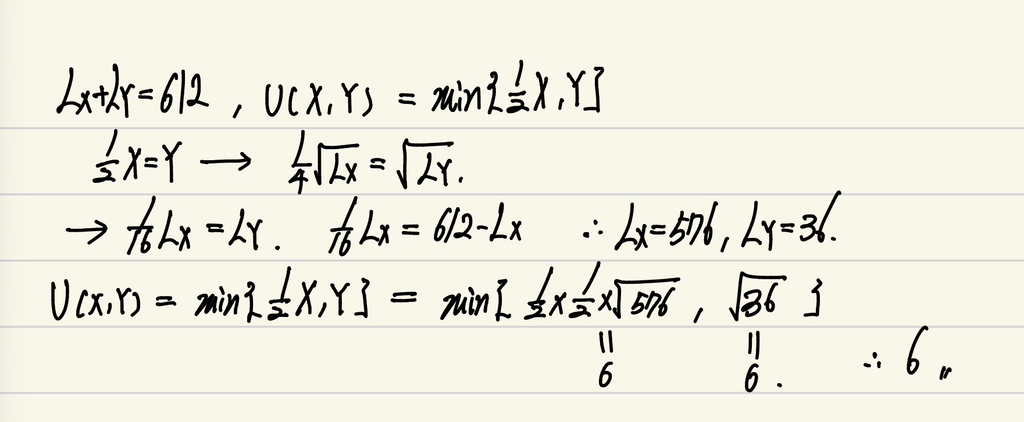 Lx+Ly=612 , U(X,Y) = min{½X,Y}
½X=Y → ¼√Lx = √LY.
→ 1/16 Lx = LY. 1/16 Lx = 612-Lx ∴ Lx=576, LY=36.
U(X,Y) = min{½X,Y} = min{ ½×½×√576 , √36 }
= 6 = 6. ∴ 6 〃